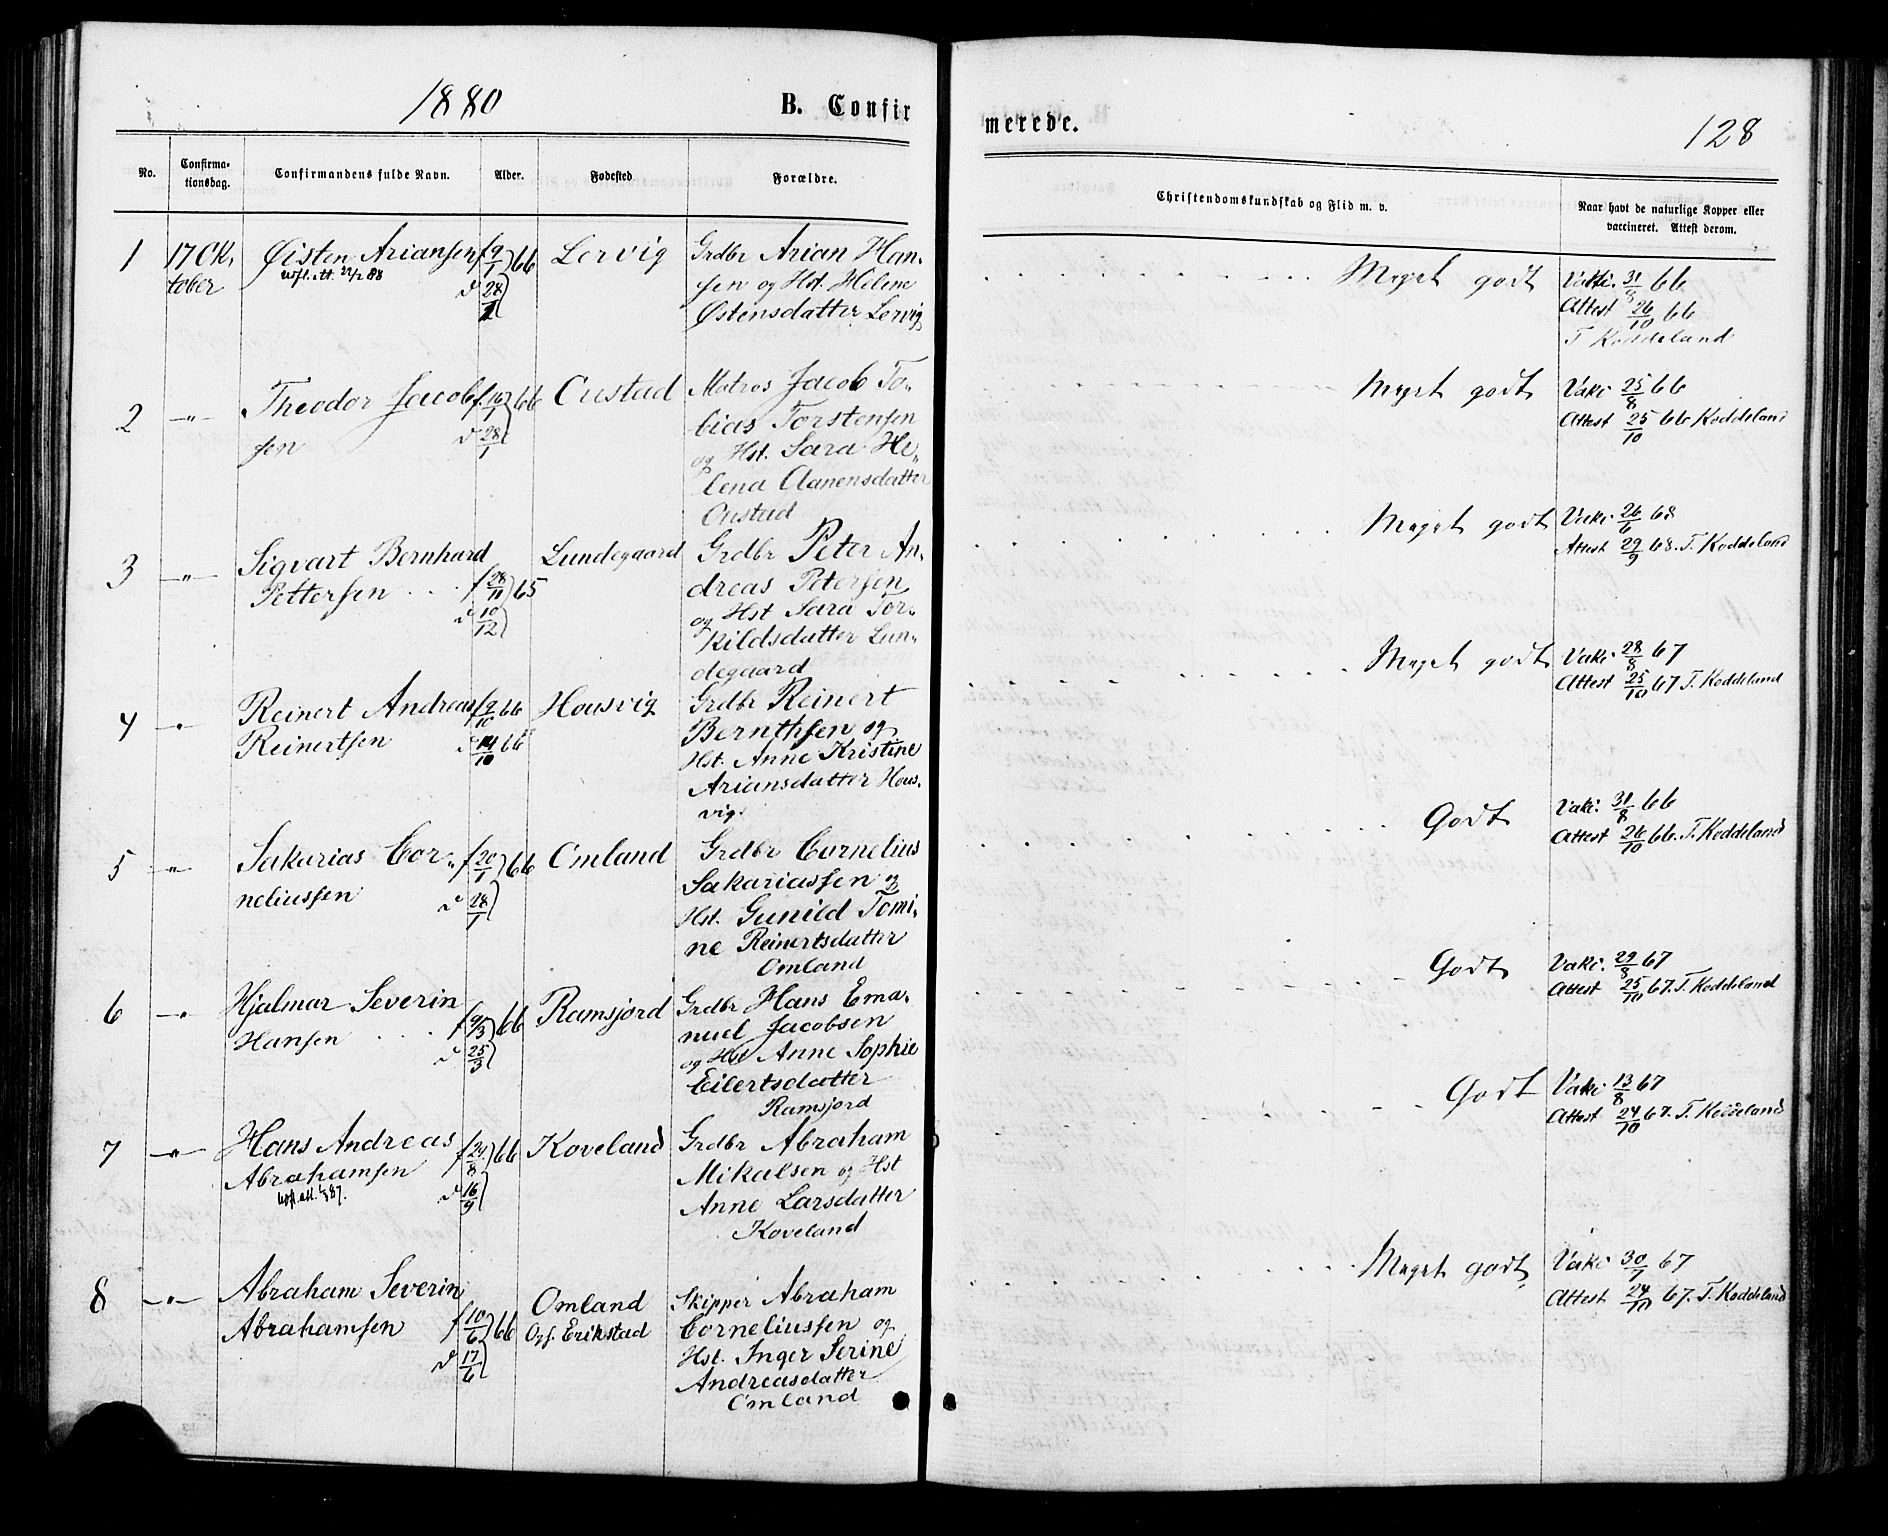 1880
B. Confir
merede.
128
No.
Confirma-
tionsdag.
Confirmandens fulde Navn.
Alder.
Fødested
Forældre.
Christendomskundskab og Flid m. v.
Naar havt de naturlige Kopper eller
vaccineret. Attest derom.
1 17 Ok, Øisten Ariansen f 9/1 66 Lervig Grdbr Arian Han-
tober d 28/1 sen og Hst. Helene
Østensdatter Lervig
Meget godt Vakci. 31/8 66
Attest 26/10 66
T Koddeland
2 -"- Theodor Jacob f. 16/1 66 Oustad Matros Jacob To-
sen d 28/1 bias Torstensen
og Hst. Sara He-
lena Aanensdatter
Oustad
Meget godt Vakc 25/8 66
Attest 25/10 66 Koddeland
3 -"- Sigvart Bernhard Lundegaard Grdbr Peter An-
Pettersen f 28/11 65 dreas Petersen
d 10/12 og Hst Sara Tor-
kildsdatter Lun-
degaard
Meget godt Vakc. 26/6 68
Attest 29/9 68. T. Koddeland
4 -"- Reinert Andreas f 9/10 66 Housvig Grdbr Reinert
Reinertsen d 14/10 66 Bernthsen og
Hst. Anne Kristine
Ariansdatter Hous-
vig.
Meget godt Vakc. 28/8 67
Attest 25/10 67 T. Koddeland
5 -"- Sakarias Cor- f 20/1 66 Omland Grdbr Cornelius
neliussen d 28/1 Sakariassen og
Hst. Gunild Tomi-
ne Reinertsdatter
Omland
Godt Vakc. 31/8 66
Attest 26/10 66. T. Koddeland
6 -"- Hjalmar Severin Ramsjord Grdbr Hans Ema-
Hansen f 9/3 66 nuel Jacobsen
d 25/3 og Hst Anne Sophie
Eilertsdatter
Ramsjord
Godt Vakc. 29/8 67
Attest 25/10 67. T. Koddeland
7 -"- Hans Andreas f 24/8 66 Koveland Grdbr Abraham
Abrahamsen d 16/9 Mikalsen og Hst
Anne Larsdatter
Koveland
Godt Vakc. 13/8 67
Attest 24/10 67. T. Koddeland
8 -"- Abraham Severin Omland Skipper Abraham
Abrahamsen f 10/6 66 Opf. Erikstad Corneliussen og
d 17/6 Hst. Inger Serine
Andreasdatter
Omland
Meget godt Vakc 30/7 67
Attest 24/10 67. T. Koddeland